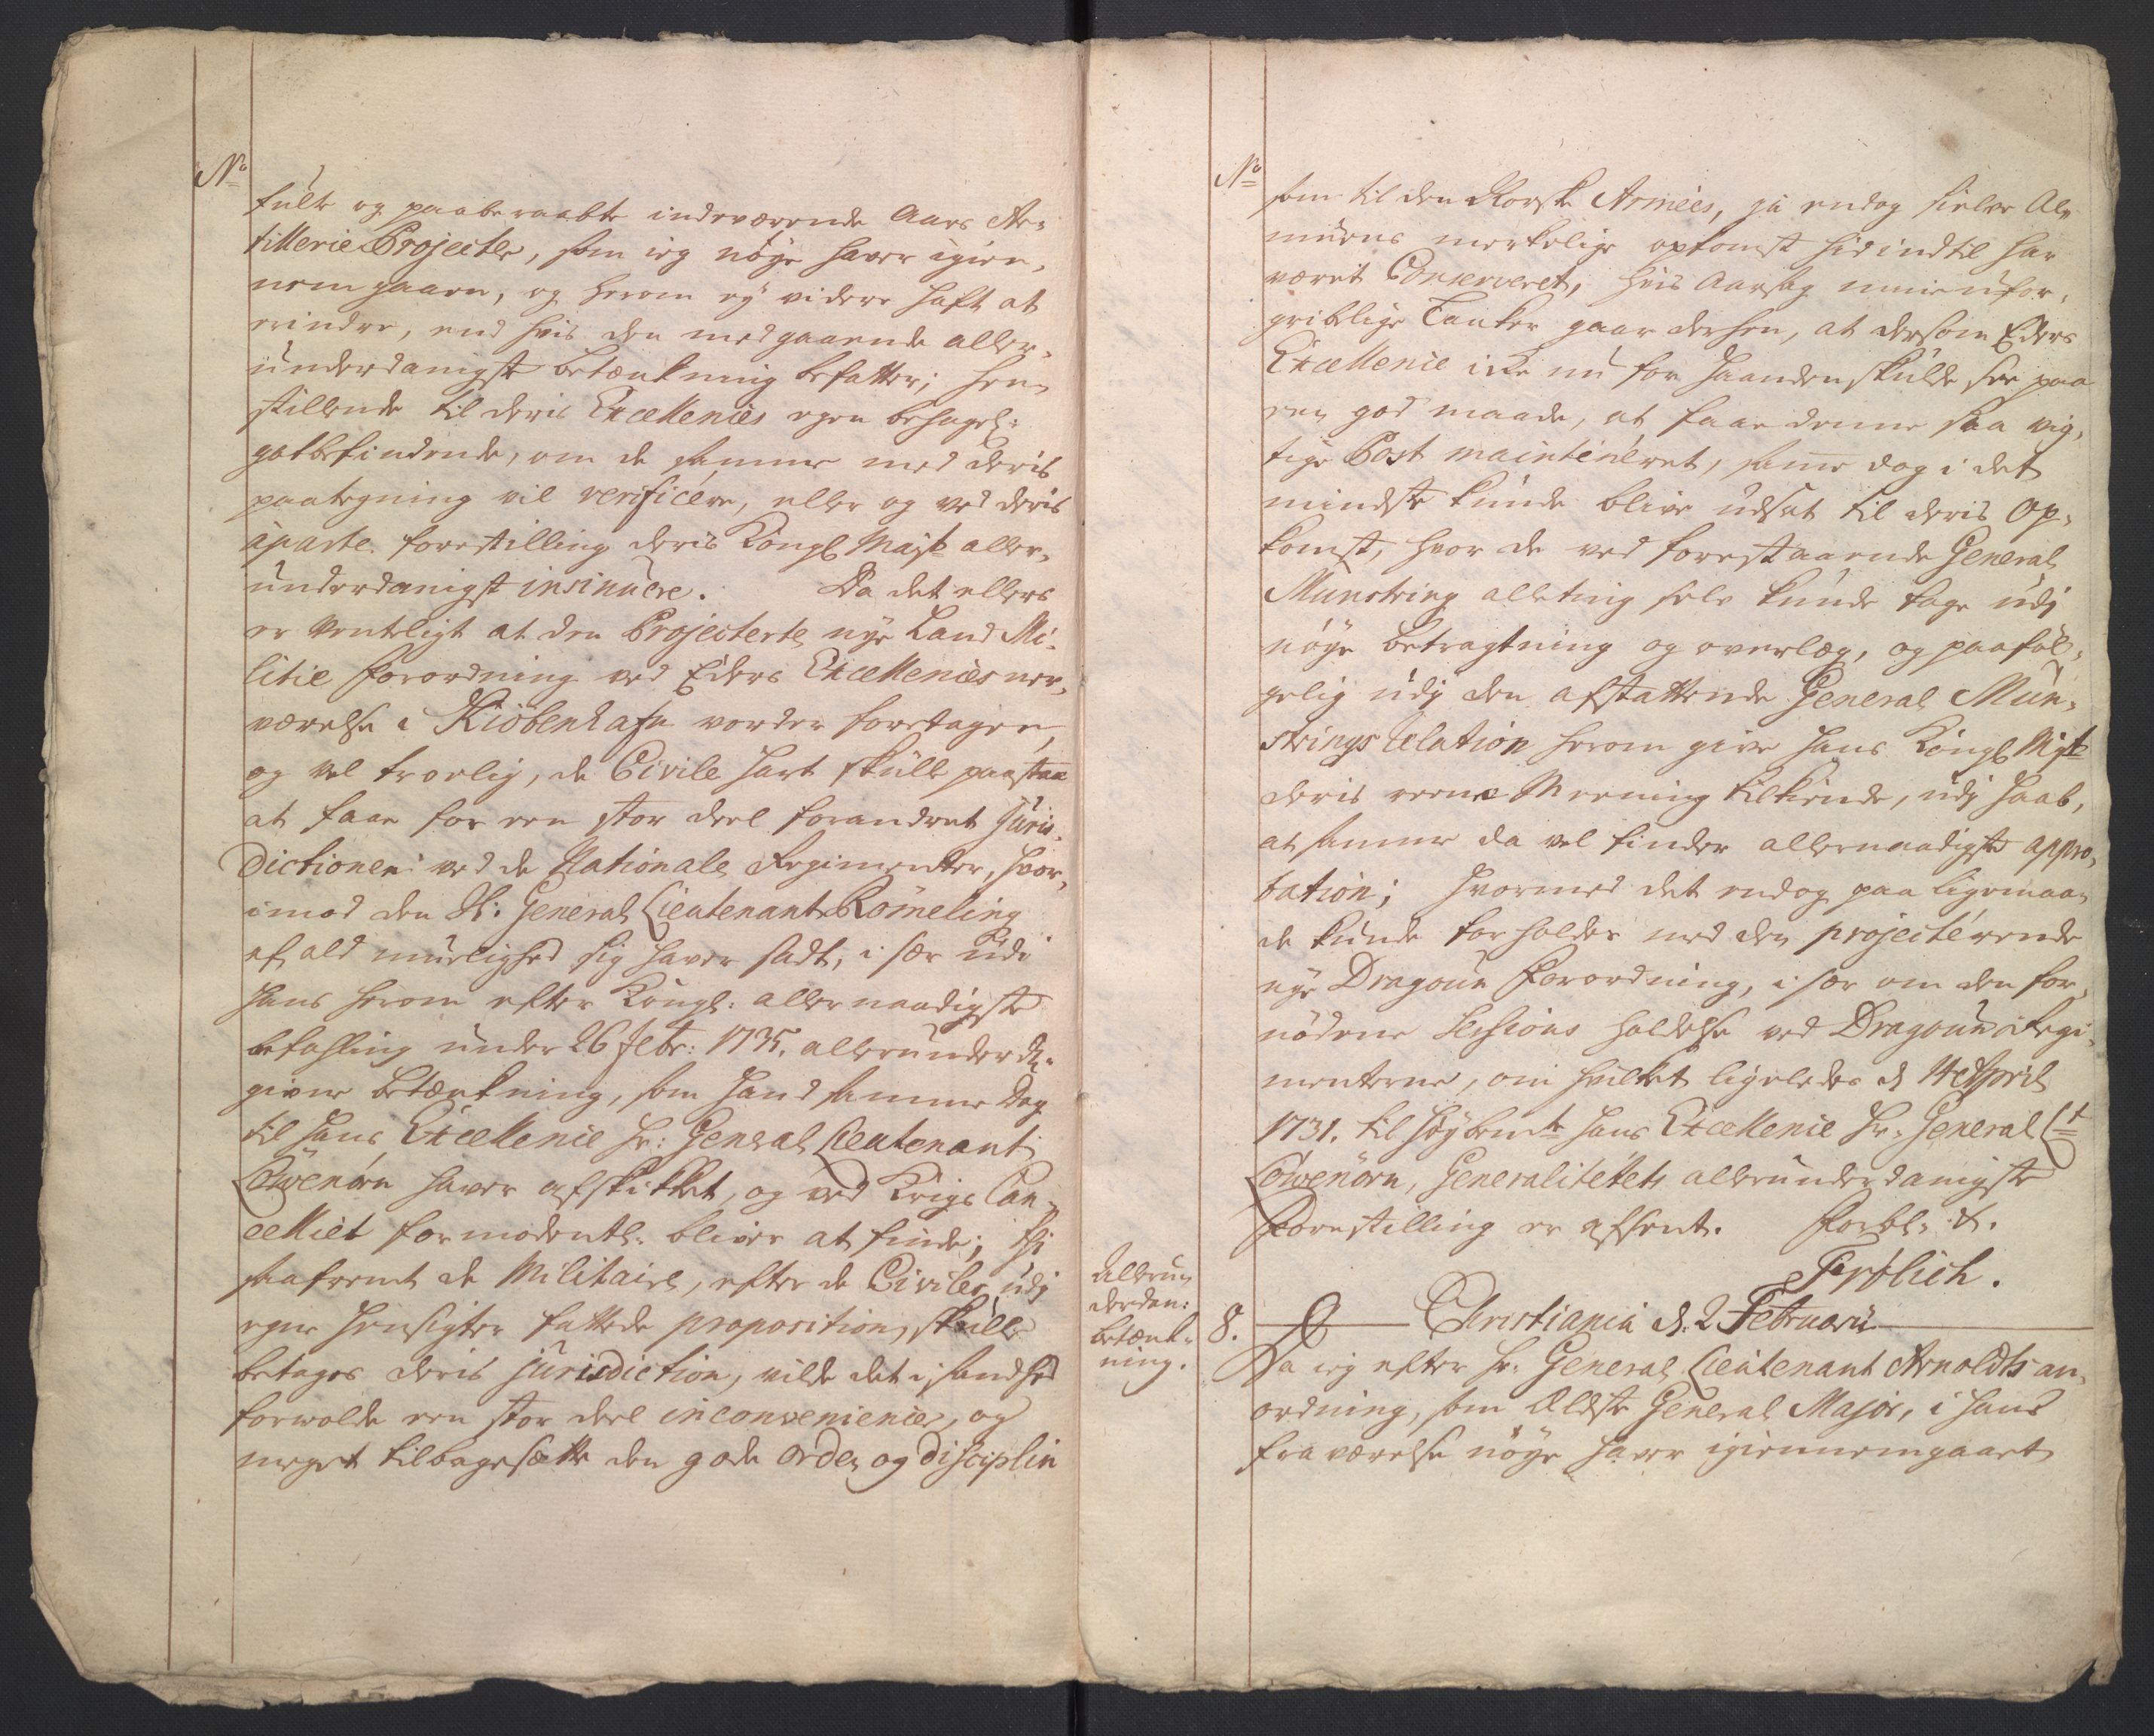 No
fulte og paaberaabte indeværende Aars Ar-
tillerie Projecter, som ieg nöye haver igien-
nem gaaen, og herom ey videre haft at
erindre, end hvis den medgaaende aller-
underdanigst betænkning befatter; hen-
stillende til deris Excellences egen behagel:
gotbefindende, om de samme med deris
paategning vil verificére, eller og ved deris
àparte forestilling deris Kongl Mayst aller-
underdanigst insinuere. Da det ellers
er venteligt at den Projecterte nye Land Mi-
litie Forordning ved Eders Excellences ner-
værelse i Kiöbenhafn vorder foretagen,
og vel troelig, de Civile hart skulle paastaa
at faae for een stor deel forandret Juris-
dictionen ved de Nationale Regimenter, hvor-
imod den H: General Lieutenant Römeling
af ald muelighed sig haver sadt, i sær udi
hans herom efter Kongl: allernaadigste
befahling under 26 Febr: 1735. allerunderd:
givne betænkning, som hand samme Dag
til hans Excellence Hr: General Lieutenant
Löwenörn haver afskikket, og ved Krigs Can-
celliet formodentl: bliver at finde; thi
saafremt de Militaire, efter de Civiles udj
egne hensigter fattede proposition, skulle
betages deris jurisdiction, vilde det i sandhed
forvolde een stor deel inconvenience, og
meget tilbagesætte den gode Orden og Disciplin
No
som til den Norske Armées, ja endog sielve Al-
muens merkelige opkomst hid indtil har
været Conserveret, hvis Aarsag mine ufor-
griblige Tanker gaar derhen, at dersom Eders
Excellence icke nu for haanden skulde see paa
een god maade, at faae denne saa vig-
tige Post maintineret, samme dog i det
mindste kunde blive udsat til deris Op-
komst, hvor de ved forestaaende General
Munstring alleting selv kunde tage udj
nöye betragtning og overlæg, og paaföl-
gelig udj den afstattende General Mun-
strings Relation herom give hans Kongl Mayst
deris reene Meening tilkiende, udj haab,
at samme da vel finder allernaadigste appro-
bation; hvormed det endog paa ligemaa-
de kunde forholdes med den projecterende
nye Dragoun Forordning, i sær om den for-
nödene Sessions holdelse ved Dragoun Regi-
menterne, om hvilket ligeledes d 14 April
1731. til höybemte hans Excellence Hr. General Lt
Löwenörn, Generalitetets allerunderdanigste
Forestilling er afsent. Forbl: &.
Frölich.
Allerun-
derdan:
betænk-
ning.
8. Christiania d. 2 Februarii
Da ieg efter Hr: General Lieutenant Arnoldts an-
ordning, som Ældste General Major, i hans
fraværelse nöye haver igiennemgaaet